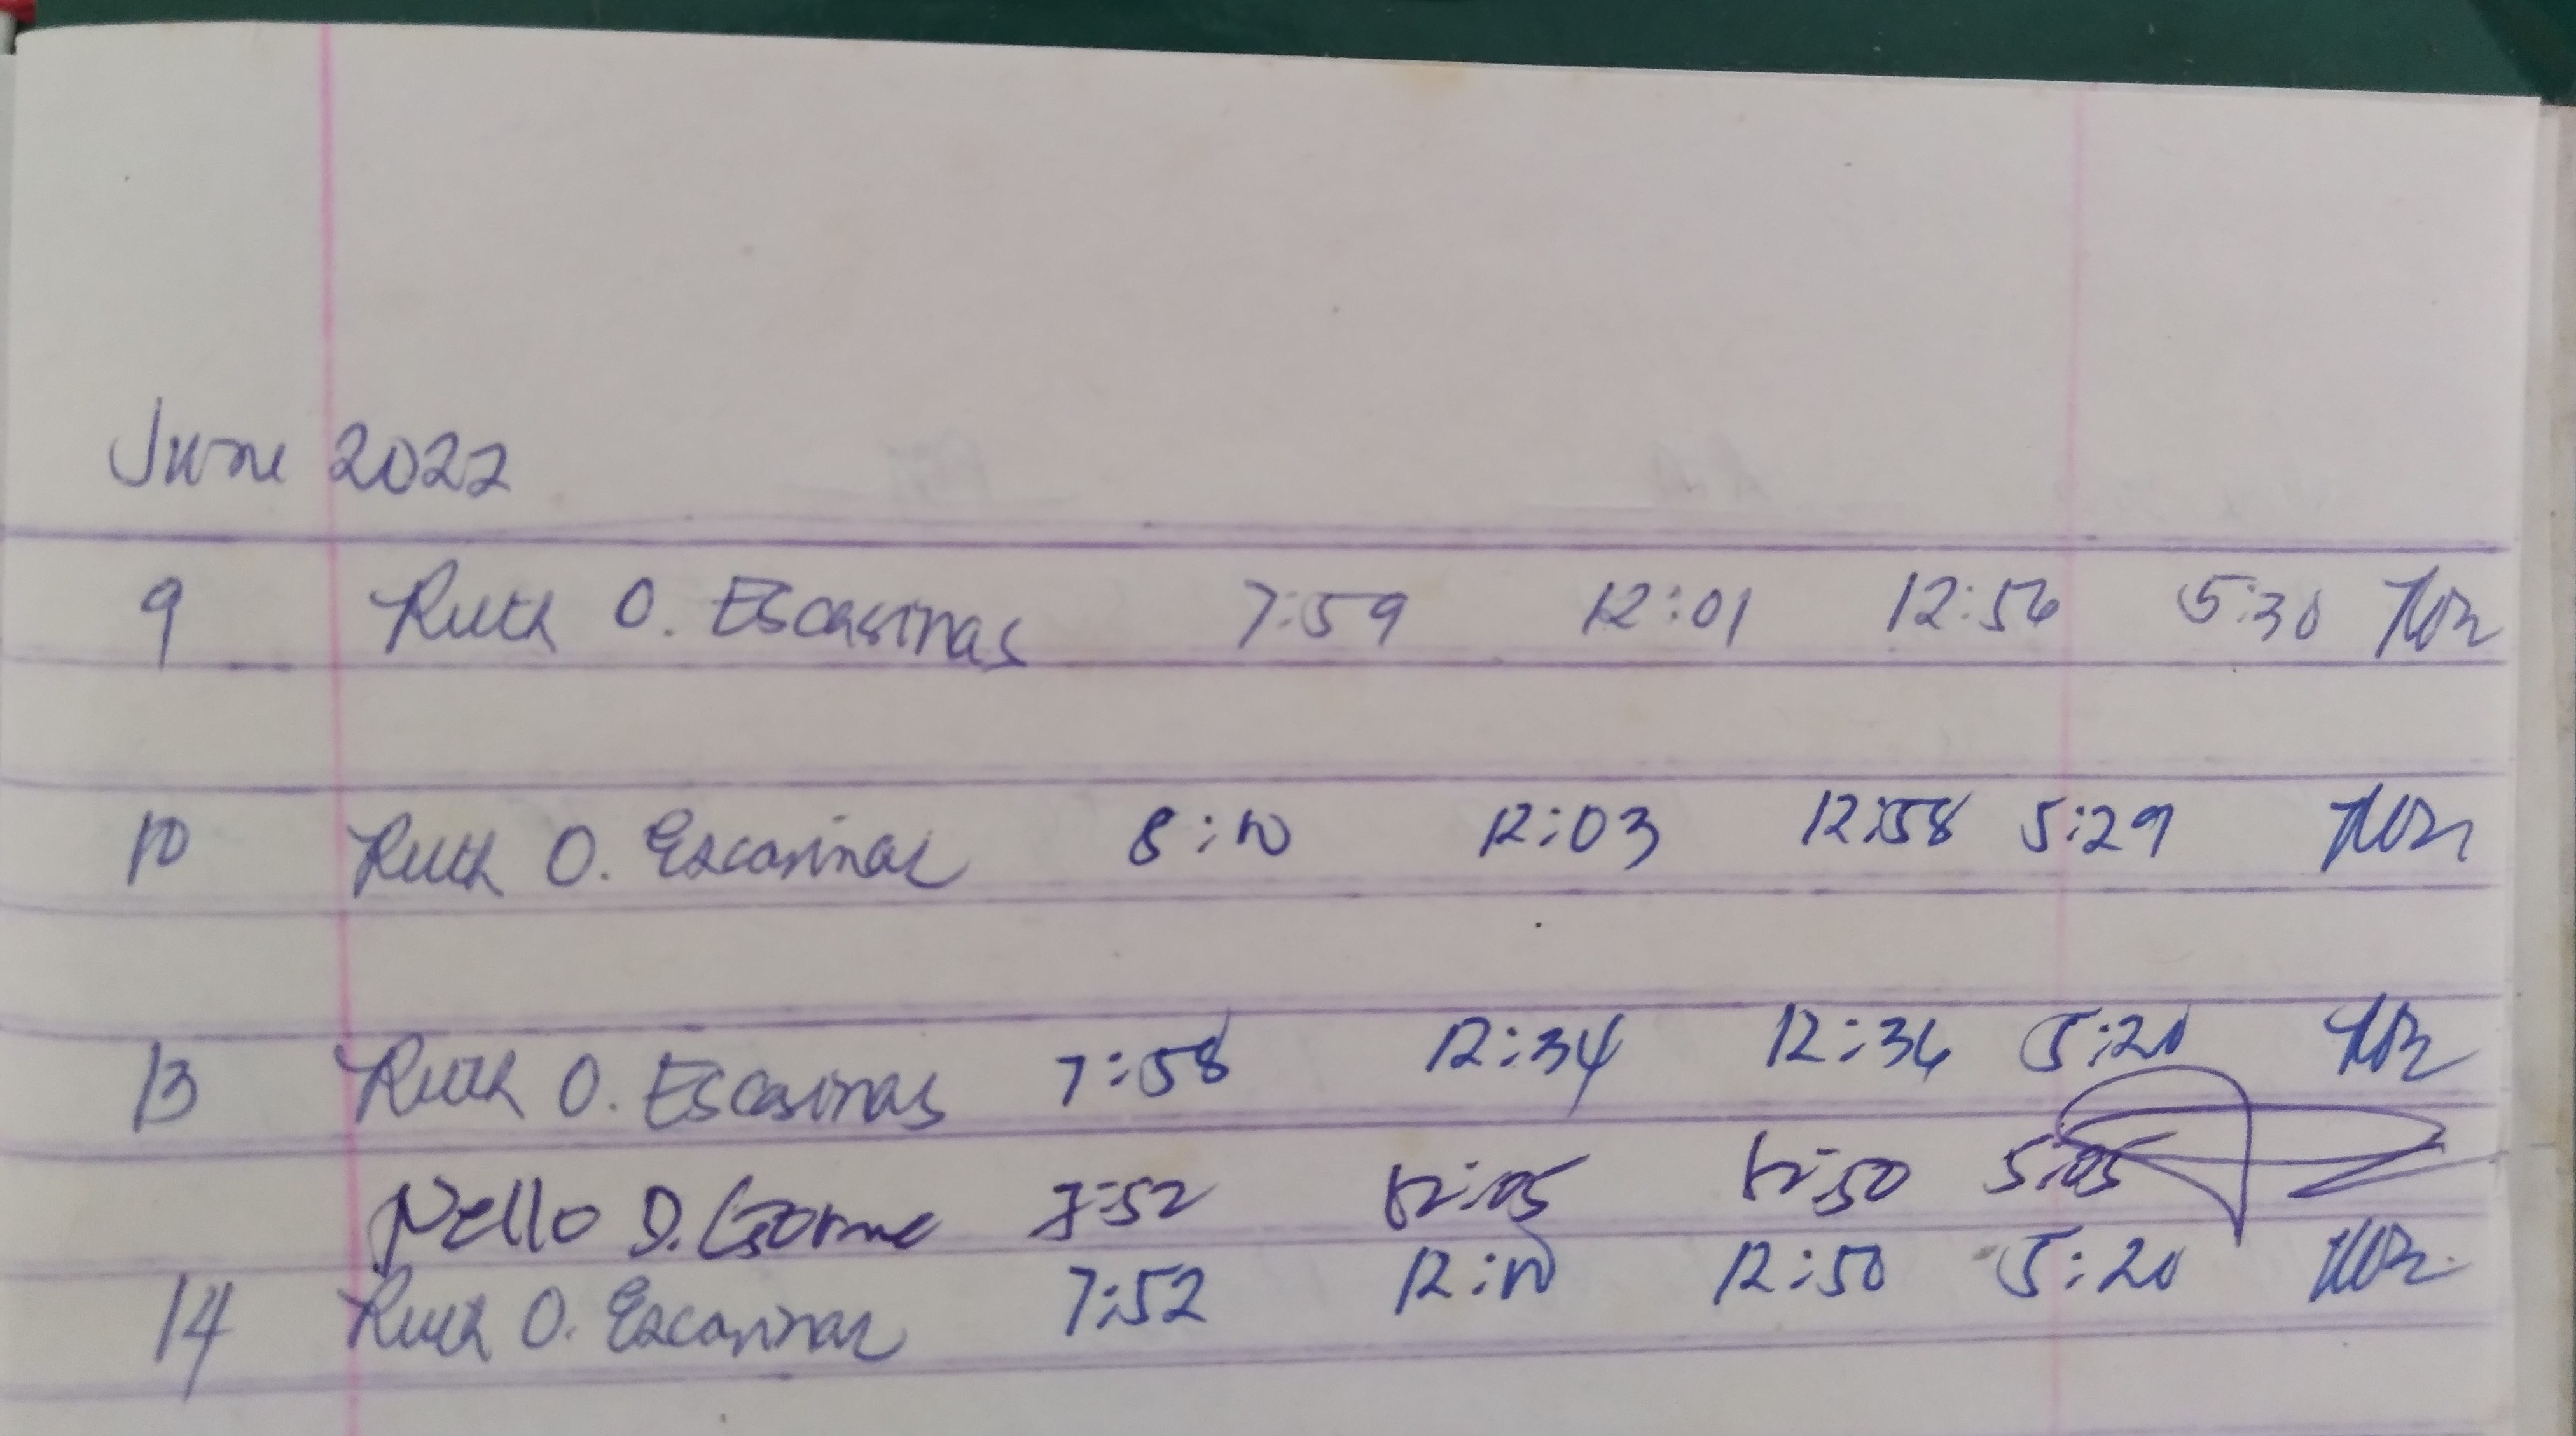 June 2022
9 Ruth O. Escasinas 7:59 12:01 12:56 5:30
10 Ruth O. Escasinas 8:10 12:03 12:58 5:29
13 Ruth O. Escasinas 7:58 12:34 12:36 5:20
Nello D. 7:52 12:05 12:50 5:05
14 Ruth O. Escasinas 7:52 12:10 12:50 5:20